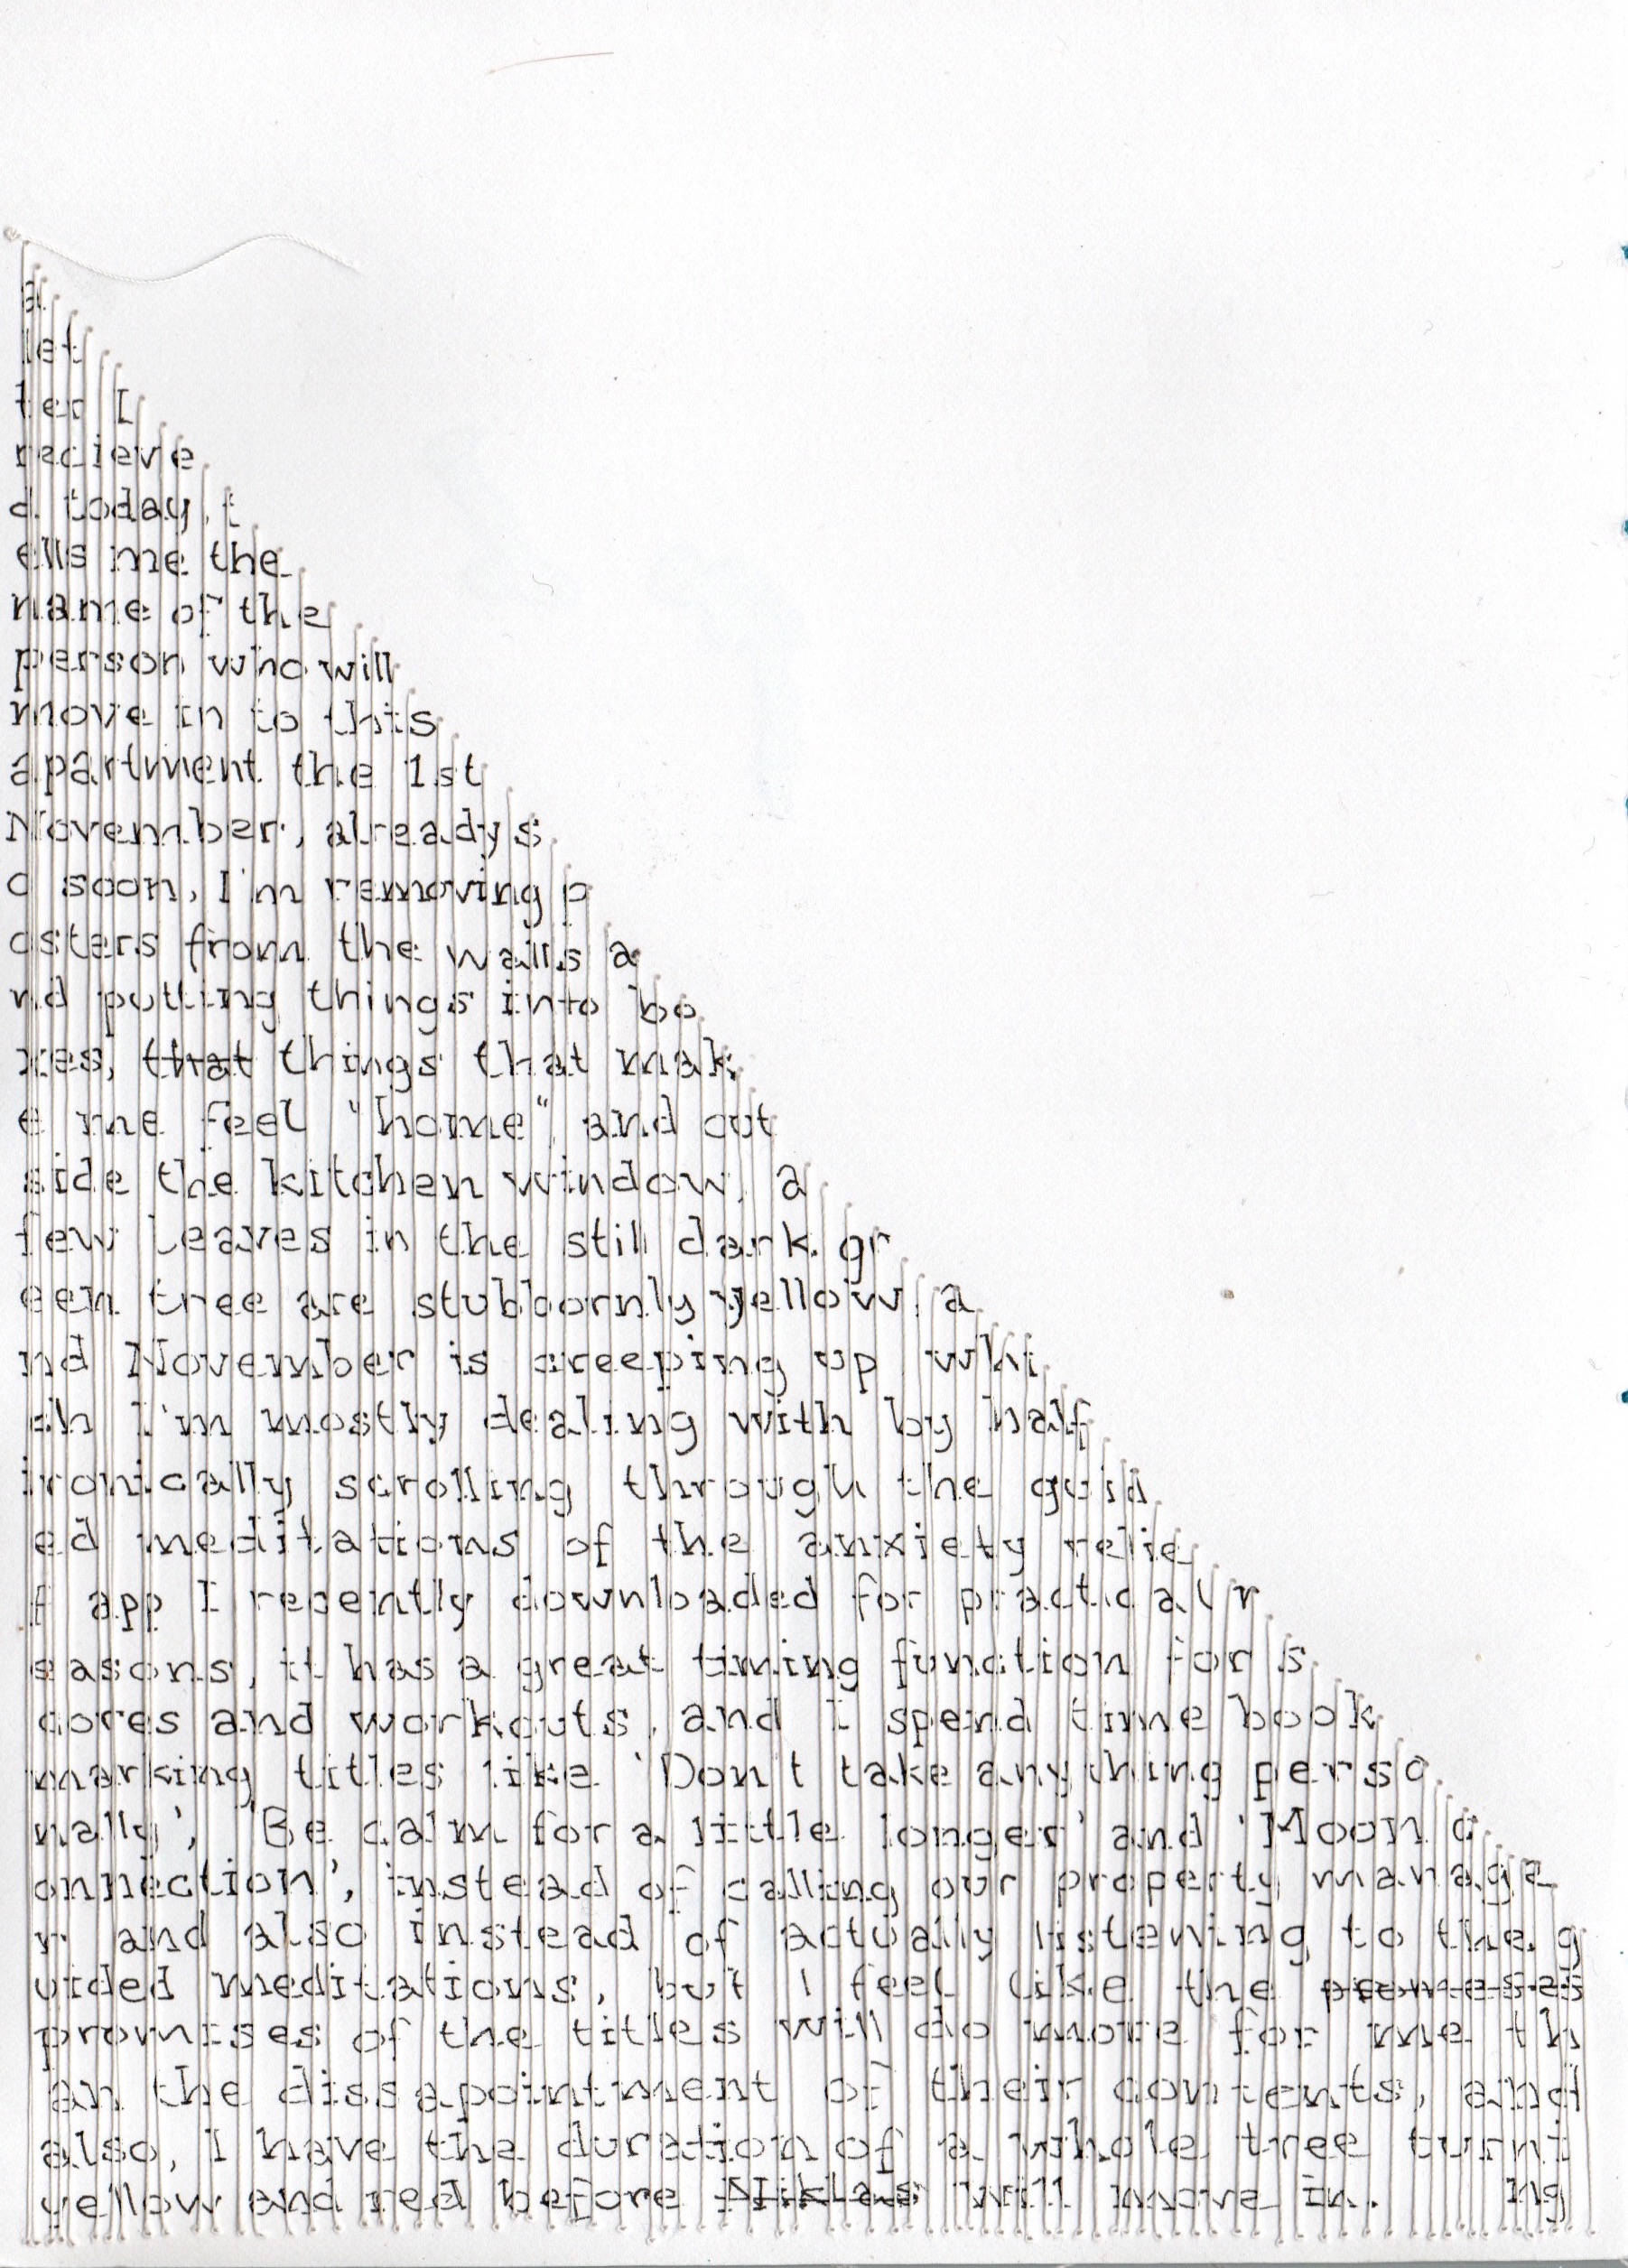 a
let
ter I
recieve
d today, t
ells me the
name of the
person who will
move in to this
apartment the 1st
November, already s
o soon, I'm removing p
osters from the walls a
nd putting things into bo
xes, that things that mak
e me feel "home", and out
side the kitchen window, a
few leaves in the still dark gr
een tree are stubbornly yellow, a
nd November is creeping up whi
ch I'm mostly dealing with by half
ironically scrolling through the guid
ed meditations of the anxiety relie
f app I recently downloaded for practical r
easons, it has a great timing function for s
cores and workouts, and I spend time book
marking titles like 'Don't take anything perso
nally', 'Be calm for a little longer' and 'Moon c
onnection', instead of calling our property manage
r and also instead of actually listening to the g
uided meditations, but I feel like the promeses
promises of the titles will do more for me th
an the dissapointment of their contents, and
also, I have the duration of a whole tree turni
yellow and red before Niklas will move in. ng